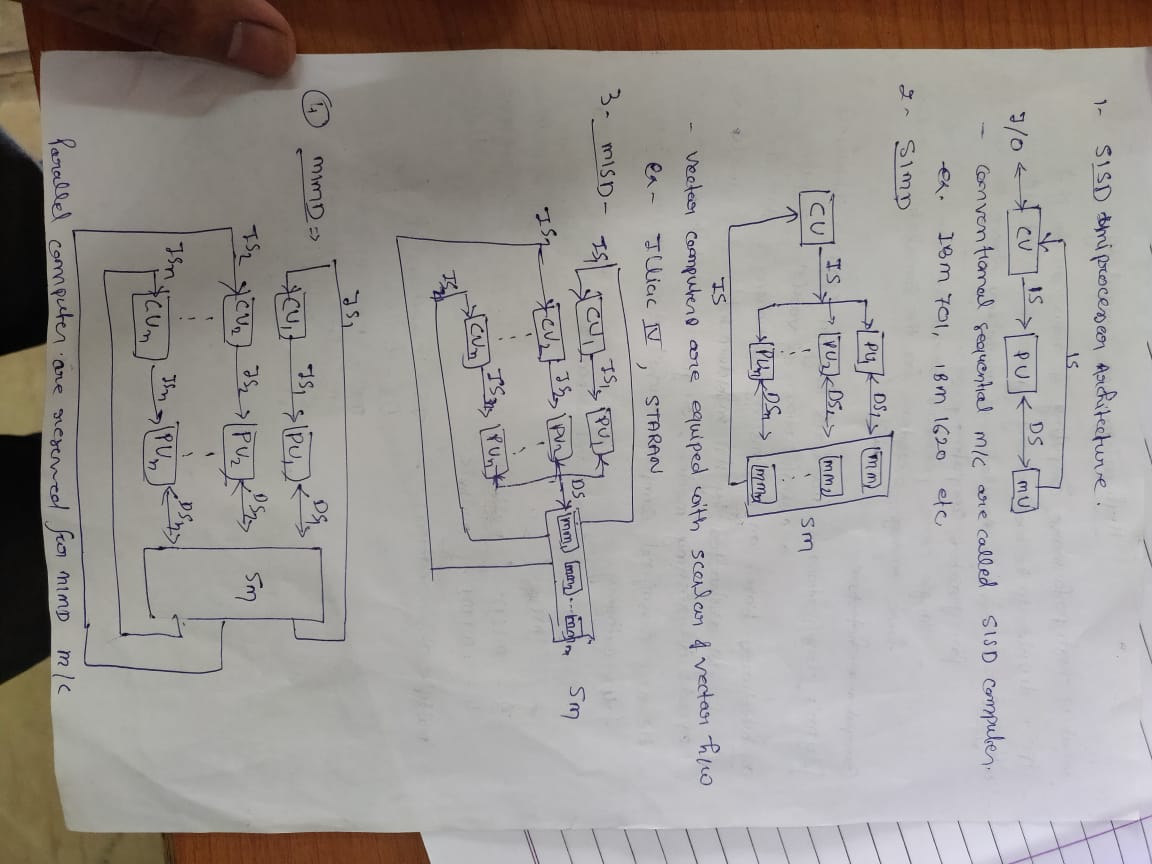 1- SISD Uniprocessor Architecture.
IS
I/O CU IS PU DS MU
- Conventional sequential m/c are called SISD computer.
ex. IBM 701, IBM 1620 etc
2- SIMD
PU1 DS1 mm1
CU IS PU2 DS2 mm2 SM
PUn DSn mmn
IS
- vector computers are equiped with scalar & vector h/w
ex- Illiac IV, STARAN
3- MISD-
IS1 CU1 IS1 PU1
IS2 CU2 IS2 PU2 DS mm1 mm2 ... mmn SM
ISn CUn ISn PUn
4 MIMD ⇒
IS1
CU1 IS1 PU1 DS1
IS2 CU2 IS2 PU2 DS2 SM
ISn CUn ISn PUn DSn
Parallel computer are reserved for MIMD m/c